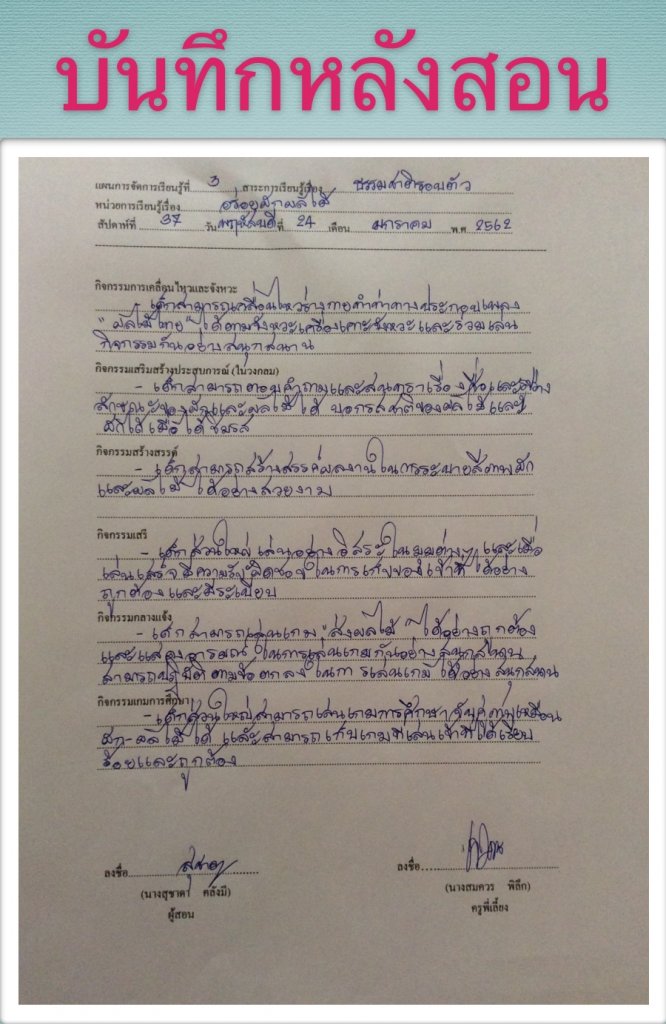 บันทึกหลังสอน
แผนการจัดการเรียนรู้ที่ 3 สาระการเรียนรู้เรื่อง ธรรมชาติรอบตัว
หน่วยการเรียนรู้เรื่อง อร่อยผักผลไม้
สัปดาห์ที่ 37 วัน พฤหัสบดี ที่ 24 เดือน มกราคม พ.ศ. 2562
กิจกรรมการเคลื่อนไหวและจังหวะ
- เด็กสามารถเคลื่อนไหวร่างกายทำท่าทางประกอบเพลง
"ผลไม้ไทย" ได้ตามจังหวะเครื่องเคาะจังหวะและร่วมเล่น
กิจกรรมกันอย่างสนุกสนาน
กิจกรรมเสริมสร้างประสบการณ์ (ในวงกลม)
- เด็กสามารถตอบคำถามและสนทนาเรื่องชื่อและรูปร่าง
ลักษณะของผักและผลไม้ได้ บอกรสชาติของผลไม้และ
ผักได้เมื่อได้ชิมรส
กิจกรรมสร้างสรรค์
- เด็กสามารถสร้างสรรค์ผลงานในการระบายสีภาพผัก
และผลไม้ ได้อย่างสวยงาม
กิจกรรมเสรี
- เด็กส่วนใหญ่เล่นอย่างอิสระในมุมต่างๆ และเมื่อ
เล่นเสร็จมีความรับผิดชอบในการเก็บของเข้าที่ ได้อย่าง
ถูกต้องและมีระเบียบ
กิจกรรมกลางแจ้ง
- เด็กสามารถเล่นเกม "ส่งผลไม้" ได้อย่างถูกต้อง
และแสดงอารมณ์ ในการเล่นเกมกันอย่างสนุกสนาน
สามารถปฏิบัติตามข้อตกลงในการเล่นเกมได้อย่างสนุกสนาน
กิจกรรมเกมการศึกษา
- เด็กส่วนใหญ่สามารถเล่นเกมการศึกษาจับคู่ภาพเหมือน
ผัก-ผลไม้ได้ และสามารถเก็บเกมที่เล่นเข้าที่ได้เรียบ
ร้อยและถูกต้อง
ลงชื่อ สุชาดา ลงชื่อ
(นางสุชาดา คลังมี) (นางสมควร พิลึก)
ผู้สอน ครูพี่เลี้ยง